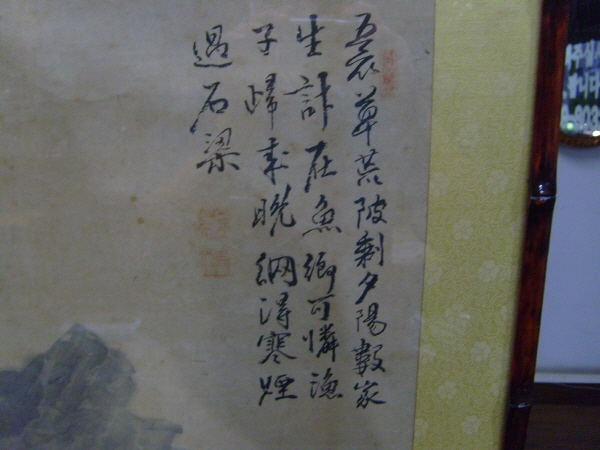 衰草荒陂剩夕陽數家
生計在魚鄉可憐漁
子歸來晚網得寒煙
過石梁
니다